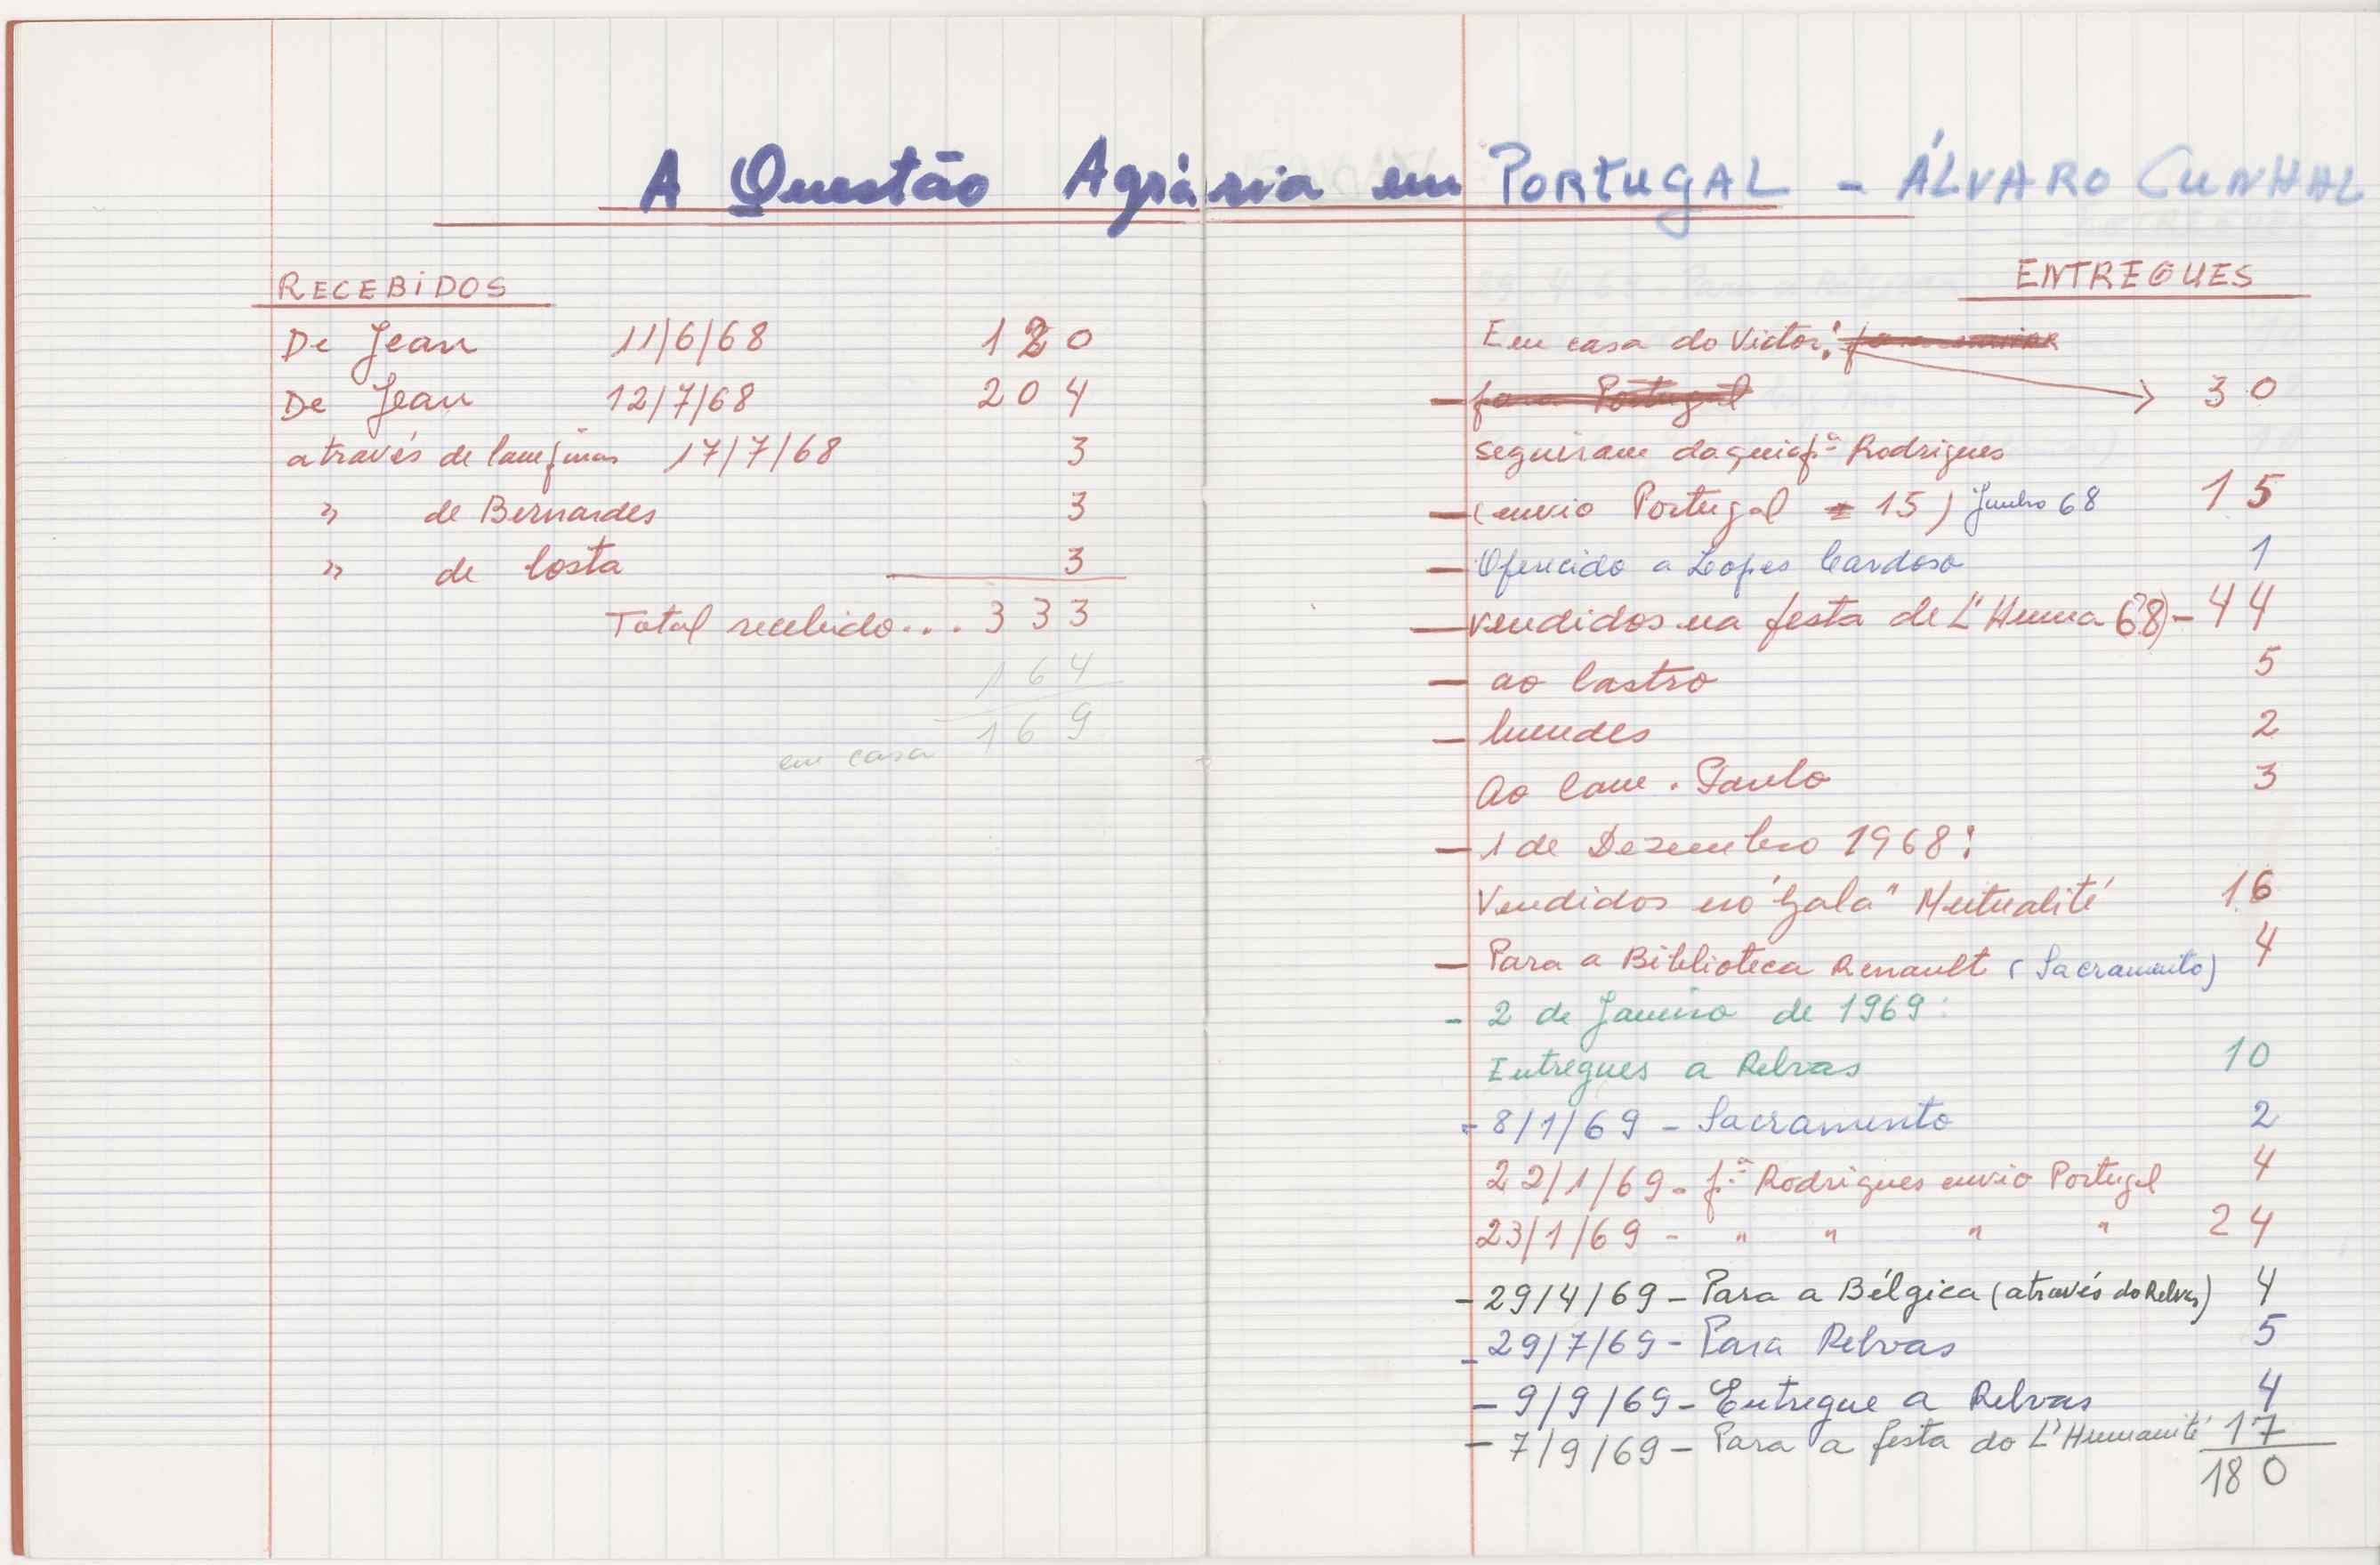 A Questão Agrária em PORTUGAL - ÁLVARO CUNHAL
RECEBIDOS
De Jean 11/6/68 120
De Jean 12/7/68 204
através de 17/7/68 3
" de Bernardes 3
" de Costa 3
Total recebido... 333
164
em casa 169
ENTREGUES
Em casa do Victor:
para Portugal 30
seguiram daqui p.ª Rodrigues
- (envio Portugal 15) Junho 68 15
- Oferecido a Lopes Cardoso 1
- vendidos na festa de L'Huma (68) - 44
- ao Castro 5
- 2
Ao Cam. Paulo 3
- 1 de Dezembro 1968:
Vendidos no "Gala" Mutualité 16
- Para a Biblioteca Renault (Sacramento) 4
- 2 de Janeiro de 1969:
Entregues a Relvas 10
- 8/1/69 - Sacramento 2
22/1/69 - p.ª Rodrigues envio Portugal 4
23/1/69 - " " " " 24
- 29/4/69 - Para a Bélgica (através do Relvas) 4
- 29/7/69 - Para Relvas 5
- 9/9/69 - Entregue a Relvas 4
- 7/9/69 - Para a festa do L'Humanité 17
180